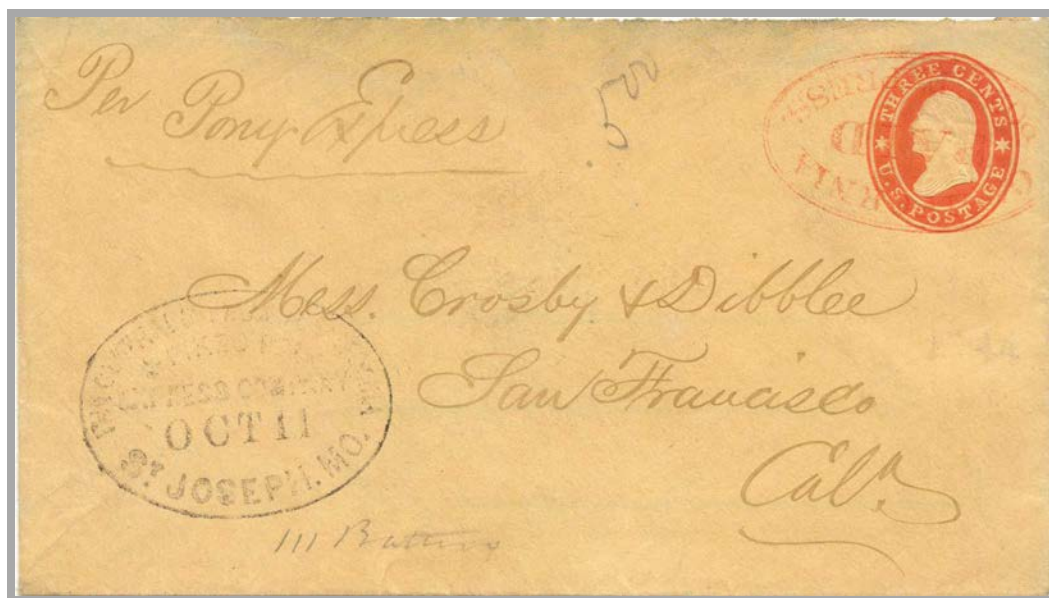 Per
Pony Express
500
THREE CENTS
U.S. POSTAGE
Mess. Crosby & Dibblee
San Francisco
Cala.
EXPRESS COMPANY
OCT 11
ST JOSEPH. MO.
111